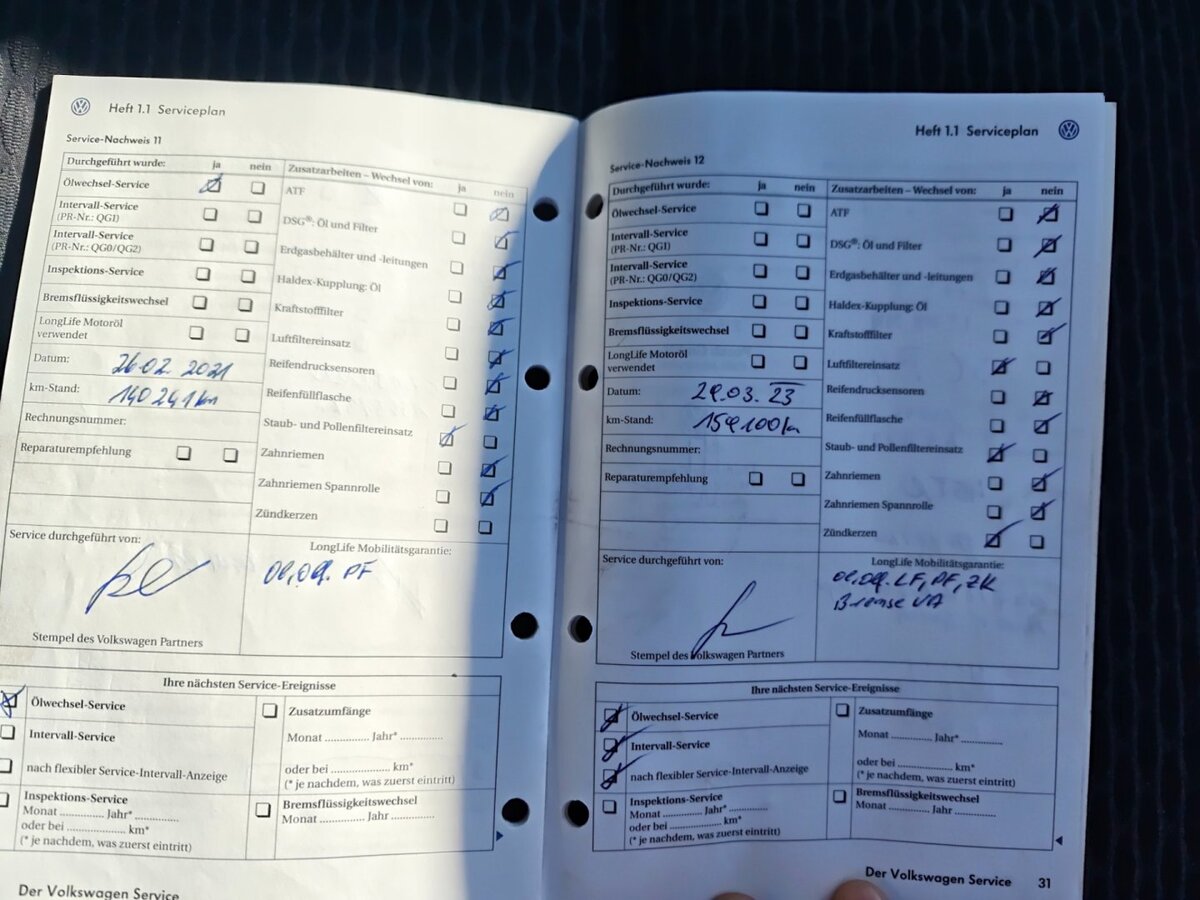 Heft 1.1 Serviceplan
Service-Nachweis 11
Durchgeführt wurde: ja nein
Ölwechsel-Service
Intervall-Service
(PR-Nr.: QG1)
Intervall-Service
(PR-Nr.: QG0/QG2)
Inspektions-Service
Bremsflüssigkeitswechsel
LongLife Motoröl
verwendet
Datum: 26.02.2021
km-Stand: 140241km
Rechnungsnummer:
Reparaturempfehlung
Zusatzarbeiten – Wechsel von: ja nein
ATF
DSG®: Öl und Filter
Erdgasbehälter und -leitungen
Haldex-Kupplung: Öl
Kraftstofffilter
Luftfiltereinsatz
Reifendrucksensoren
Reifenfüllflasche
Staub- und Pollenfiltereinsatz
Zahnriemen
Zahnriemen Spannrolle
Zündkerzen
Service durchgeführt von:
Stempel des Volkswagen Partners
LongLife Mobilitätsgarantie:
PF
Ihre nächsten Service-Ereignisse
Ölwechsel-Service
Intervall-Service
nach flexibler Service-Intervall-Anzeige
Inspektions-Service
Monat ............ Jahr* ............
oder bei ............ km*
(* je nachdem, was zuerst eintritt)
Zusatzumfänge
Monat ............ Jahr* ............
oder bei ............ km*
(* je nachdem, was zuerst eintritt)
Bremsflüssigkeitswechsel
Monat ............ Jahr ............
Der Volkswagen Service
Heft 1.1 Serviceplan
Service-Nachweis 12
Durchgeführt wurde: ja nein
Ölwechsel-Service
Intervall-Service
(PR-Nr.: QG1)
Intervall-Service
(PR-Nr.: QG0/QG2)
Inspektions-Service
Bremsflüssigkeitswechsel
LongLife Motoröl
verwendet
Datum: 29.03.23
km-Stand: 159100km
Rechnungsnummer:
Reparaturempfehlung
Zusatzarbeiten – Wechsel von: ja nein
ATF
DSG®: Öl und Filter
Erdgasbehälter und -leitungen
Haldex-Kupplung: Öl
Kraftstofffilter
Luftfiltereinsatz
Reifendrucksensoren
Reifenfüllflasche
Staub- und Pollenfiltereinsatz
Zahnriemen
Zahnriemen Spannrolle
Zündkerzen
Service durchgeführt von:
Stempel des Volkswagen Partners
LongLife Mobilitätsgarantie:
LF, PF, ZK
Bremse VA
Ihre nächsten Service-Ereignisse
Ölwechsel-Service
Intervall-Service
nach flexibler Service-Intervall-Anzeige
Inspektions-Service
Monat ............ Jahr* ............
oder bei ............ km*
(* je nachdem, was zuerst eintritt)
Zusatzumfänge
Monat ............ Jahr* ............
oder bei ............ km*
(* je nachdem, was zuerst eintritt)
Bremsflüssigkeitswechsel
Monat ............ Jahr ............
Der Volkswagen Service 31